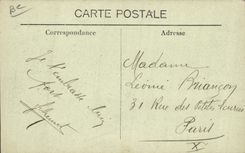 BC
CARTE POSTALE
Correspondance
Adresse
Je t'embrasse bien
fort
Madame
Léonie Briançon
31 Rue des Petites Ecuries
Paris
X